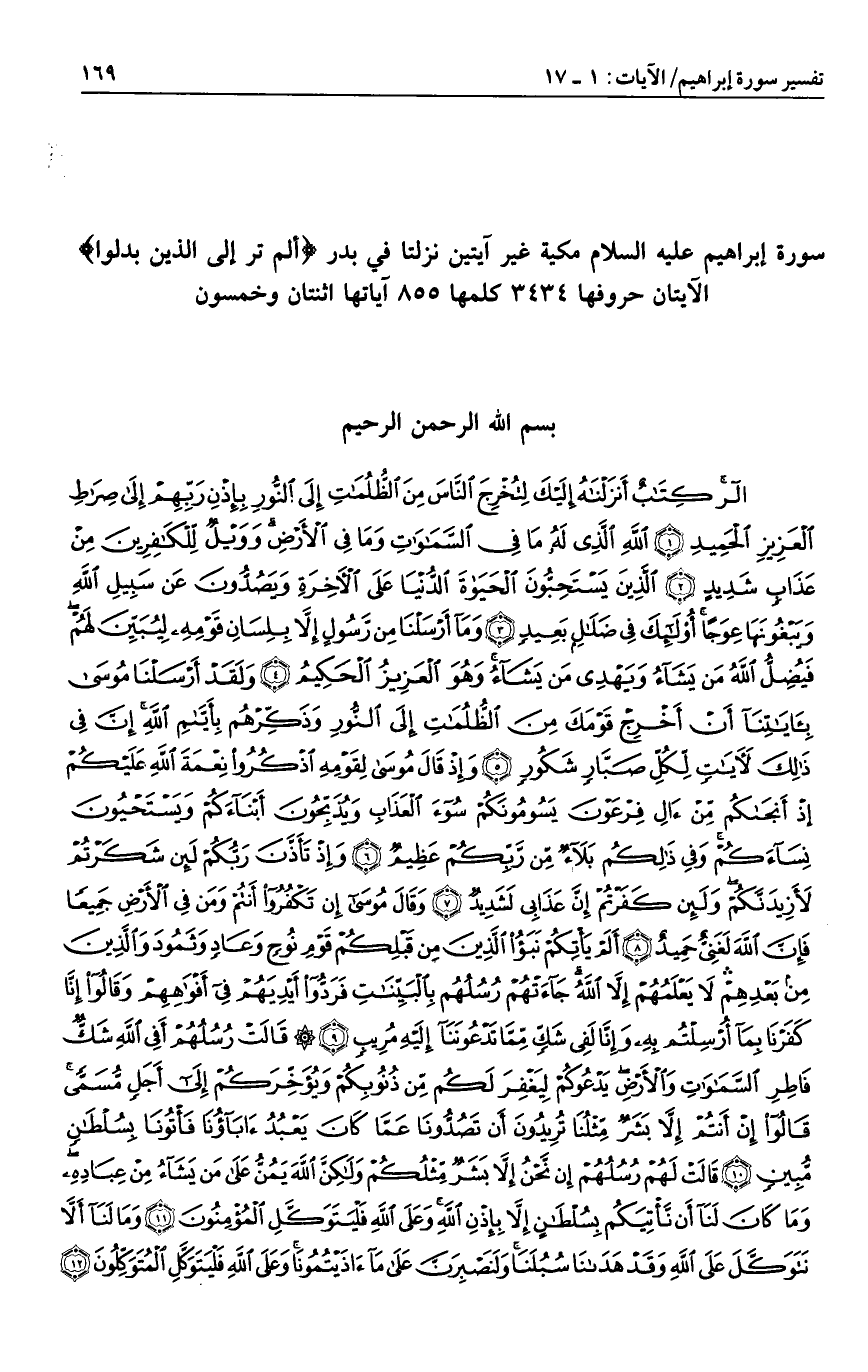 تفسير سورة إبراهيم/ الآيات: ١ - ١٧ ١٦٩
سورة إبراهيم عليه السلام مكية غير آيتين نزلتا في بدر ﴿ألم تر إلى الذين بدلوا﴾
الآيتان حروفها ٣٤٣٤ كلمها ٨٥٥ آياتها اثنتان وخمسون
بسم الله الرحمن الرحيم
الٓرۚ كِتَٰبٌ أَنزَلْنَٰهُ إِلَيْكَ لِتُخْرِجَ ٱلنَّاسَ مِنَ ٱلظُّلُمَٰتِ إِلَى ٱلنُّورِ بِإِذْنِ رَبِّهِمْ إِلَىٰ صِرَٰطِ
ٱلْعَزِيزِ ٱلْحَمِيدِ ﴿١﴾ ٱللَّهِ ٱلَّذِى لَهُۥ مَا فِى ٱلسَّمَٰوَٰتِ وَمَا فِى ٱلْأَرْضِۗ وَوَيْلٌ لِّلْكَٰفِرِينَ مِنْ
عَذَابٍ شَدِيدٍ ﴿٢﴾ ٱلَّذِينَ يَسْتَحِبُّونَ ٱلْحَيَوٰةَ ٱلدُّنْيَا عَلَى ٱلْءَاخِرَةِ وَيَصُدُّونَ عَن سَبِيلِ ٱللَّهِ
وَيَبْغُونَهَا عِوَجًاۚ أُو۟لَٰٓئِكَ فِى ضَلَٰلٍۭ بَعِيدٍ ﴿٣﴾ وَمَآ أَرْسَلْنَا مِن رَّسُولٍ إِلَّا بِلِسَانِ قَوْمِهِۦ لِيُبَيِّنَ لَهُمْۖ
فَيُضِلُّ ٱللَّهُ مَن يَشَآءُ وَيَهْدِى مَن يَشَآءُۚ وَهُوَ ٱلْعَزِيزُ ٱلْحَكِيمُ ﴿٤﴾ وَلَقَدْ أَرْسَلْنَا مُوسَىٰ
بِـَٔايَٰتِنَآ أَنْ أَخْرِجْ قَوْمَكَ مِنَ ٱلظُّلُمَٰتِ إِلَى ٱلنُّورِ وَذَكِّرْهُم بِأَيَّىٰمِ ٱللَّهِۚ إِنَّ فِى
ذَٰلِكَ لَءَايَٰتٍ لِّكُلِّ صَبَّارٍ شَكُورٍ ﴿٥﴾ وَإِذْ قَالَ مُوسَىٰ لِقَوْمِهِ ٱذْكُرُوا۟ نِعْمَةَ ٱللَّهِ عَلَيْكُمْ
إِذْ أَنجَىٰكُم مِّنْ ءَالِ فِرْعَوْنَ يَسُومُونَكُمْ سُوٓءَ ٱلْعَذَابِ وَيُذَبِّحُونَ أَبْنَآءَكُمْ وَيَسْتَحْيُونَ
نِسَآءَكُمْۚ وَفِى ذَٰلِكُم بَلَآءٌ مِّن رَّبِّكُمْ عَظِيمٌ ﴿٦﴾ وَإِذْ تَأَذَّنَ رَبُّكُمْ لَئِن شَكَرْتُمْ
لَأَزِيدَنَّكُمْۖ وَلَئِن كَفَرْتُمْ إِنَّ عَذَابِى لَشَدِيدٌ ﴿٧﴾ وَقَالَ مُوسَىٰٓ إِن تَكْفُرُوٓا۟ أَنتُمْ وَمَن فِى ٱلْأَرْضِ جَمِيعًا
فَإِنَّ ٱللَّهَ لَغَنِىٌّ حَمِيدٌ ﴿٨﴾ أَلَمْ يَأْتِكُمْ نَبَؤُا۟ ٱلَّذِينَ مِن قَبْلِكُمْ قَوْمِ نُوحٍ وَعَادٍ وَثَمُودَ وَٱلَّذِينَ
مِنۢ بَعْدِهِمْۛ لَا يَعْلَمُهُمْ إِلَّا ٱللَّهُۚ جَآءَتْهُمْ رُسُلُهُم بِٱلْبَيِّنَٰتِ فَرَدُّوٓا۟ أَيْدِيَهُمْ فِىٓ أَفْوَٰهِهِمْ وَقَالُوٓا۟ إِنَّا
كَفَرْنَا بِمَآ أُرْسِلْتُم بِهِۦ وَإِنَّا لَفِى شَكٍّ مِّمَّا تَدْعُونَنَآ إِلَيْهِ مُرِيبٍ ﴿٩﴾ ۞ قَالَتْ رُسُلُهُمْ أَفِى ٱللَّهِ شَكٌّ
فَاطِرِ ٱلسَّمَٰوَٰتِ وَٱلْأَرْضِۖ يَدْعُوكُمْ لِيَغْفِرَ لَكُم مِّن ذُنُوبِكُمْ وَيُؤَخِّرَكُمْ إِلَىٰٓ أَجَلٍ مُّسَمًّىۚ
قَالُوٓا۟ إِنْ أَنتُمْ إِلَّا بَشَرٌ مِّثْلُنَا تُرِيدُونَ أَن تَصُدُّونَا عَمَّا كَانَ يَعْبُدُ ءَابَآؤُنَا فَأْتُونَا بِسُلْطَٰنٍ
مُّبِينٍ ﴿١٠﴾ قَالَتْ لَهُمْ رُسُلُهُمْ إِن نَّحْنُ إِلَّا بَشَرٌ مِّثْلُكُمْ وَلَٰكِنَّ ٱللَّهَ يَمُنُّ عَلَىٰ مَن يَشَآءُ مِنْ عِبَادِهِۦۖ
وَمَا كَانَ لَنَآ أَن نَّأْتِيَكُم بِسُلْطَٰنٍ إِلَّا بِإِذْنِ ٱللَّهِۚ وَعَلَى ٱللَّهِ فَلْيَتَوَكَّلِ ٱلْمُؤْمِنُونَ ﴿١١﴾ وَمَا لَنَآ أَلَّا
نَتَوَكَّلَ عَلَى ٱللَّهِ وَقَدْ هَدَىٰنَا سُبُلَنَاۚ وَلَنَصْبِرَنَّ عَلَىٰ مَآ ءَاذَيْتُمُونَاۚ وَعَلَى ٱللَّهِ فَلْيَتَوَكَّلِ ٱلْمُتَوَكِّلُونَ ﴿١٢﴾